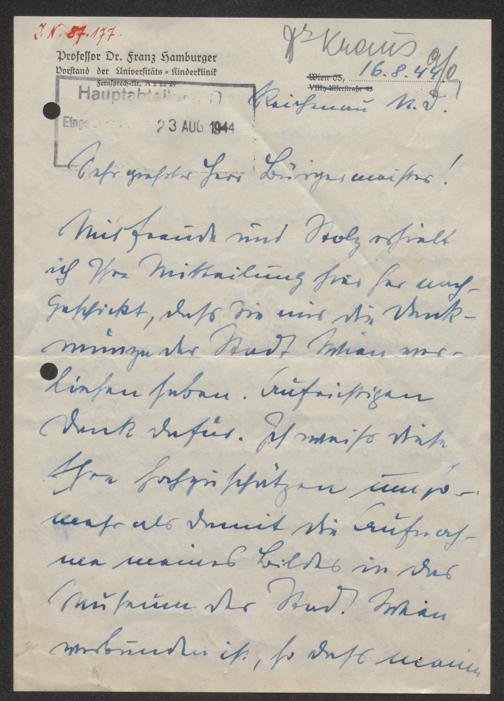 J. N. 87.177.
Dr Kraus
Professor Dr. Franz Hamburger
Vorstand der Universitäts-Kinderklinik
Fernsprech-Nr.
Wien 65, 16.8.44
Hauptabteilung
Reichenau N. D.
Einge 23 AUG 1944
Sehr geehrter Herr Bürgermeister!
Mit Freude und Stolz erhielt
ich Ihre Mitteilung hier her nach-
geschickt, daß Sie mir die Denk-
münze der Stadt Wien ver-
liehen haben. Aufrichtigen
Dank dafür. Ich weiß diese
Ehre hochzuschätzen umso-
mehr als damit die Aufnah-
me meines Bildes in das
Museum der Stadt Wien
verbunden ist, so daß meine